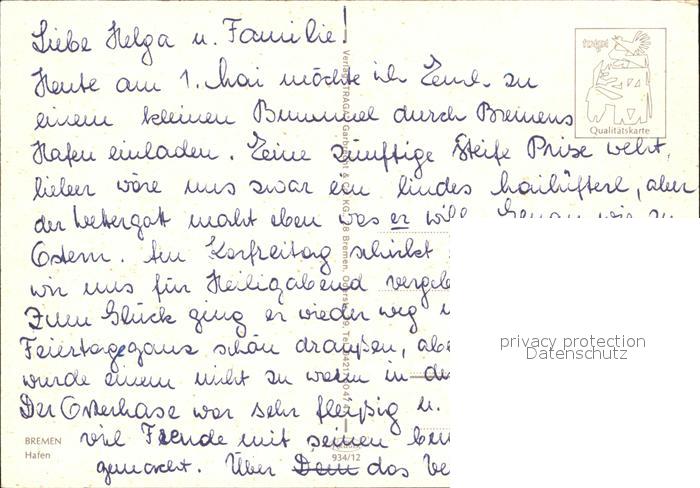 Liebe Helga u. Familie!
Heute am 1. Mai möchte ich Euch zu
einem kleinen Bummel durch Bremens
Hafen einladen. Eine zünftige steife Prise weht,
lieber wäre uns zwar ein lindes Mailüfterl, aber
der Wettergott macht eben was er will. Genau wie zu
Ostern. Am Karfreitag schickt
wir uns für Heiligabend
Zum Glück ging er wieder weg
Feiertage ganz schön draußen,
wurde einem nicht zu warm in
Der Osterhase war sehr fleißig u.
viel Freude mit seinen
gemacht. Über Dein das
Qualitätskarte
BREMEN
Hafen
934/12
privacy protection
Datenschutz